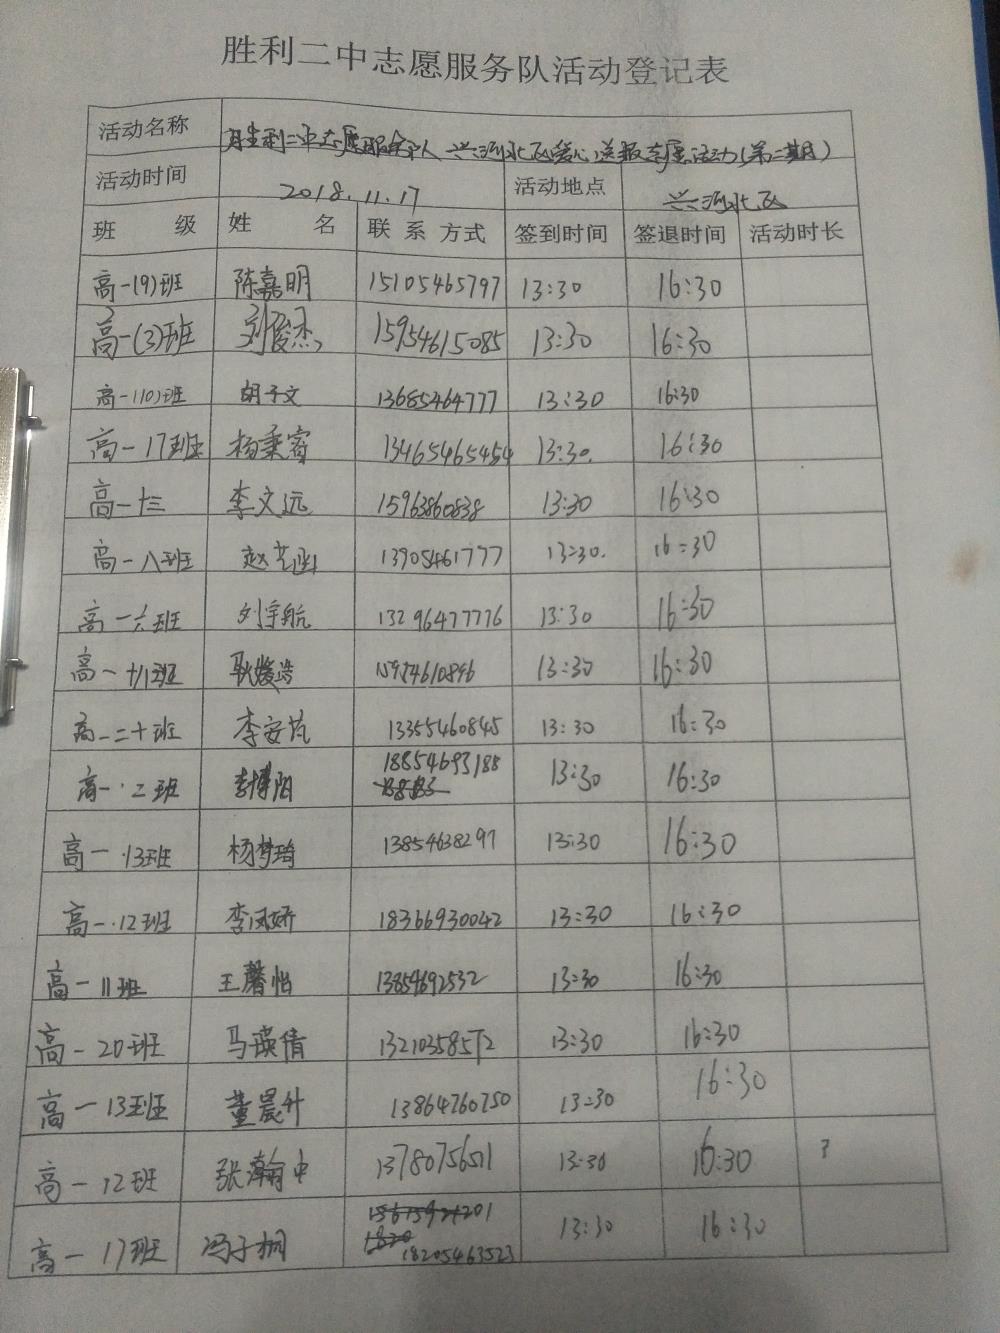 胜利二中志愿服务队活动登记表
活动名称 胜利二中志愿服务队 兴河北区爱心送报志愿活动(第二期)
活动时间 2018.11.17 活动地点 兴河北区
班 级 姓 名 联 系 方式 签到时间 签退时间 活动时长
高一(9)班 陈嘉明 15105465797 13:30 16:30
高一(3)班 刘俊杰 15954615085 13:30 16:30
高一(10)班 胡子文 13685464777 13:30 16:30
高一17班 杨秉睿 13465465454 13:30. 16:30
高一十三 李文远 15963860838 13:30 16:30
高一八班 赵艺涵 13905461777 13:30. 16:30
高一六班 刘宇航 13296477776 13:30 16:30
高一十八班 耿媛浩 15954610896 13:30 16:30
高一二十班 李安芃 13355460845 13:30 16:30
高一·二班 李博阳 18854693188 13:30 16:30
高一·13班 杨梦琦 13854638297 13:30 16:30
高一·12班 李凤娇 18366930042 13:30 16:30
高一11班 王馨怡 13854692532 13:30 16:30
高一20班 马瑛倩 13210358572 13:30 16:30
高一13班 董晨升 13864760750 13:30 16:30
高一12班 张瀚中 13780756511 13:30 16:30
高一17班 冯子桐 18205463523 13:30 16:30